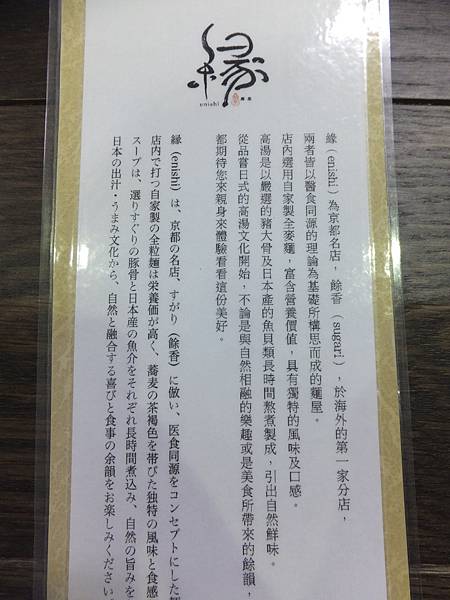 縁
enishi
麺屋
緣(enishi)為京都名店,餘香(sugari),於海外的第一家分店,
兩者皆以醫食同源的理論為基礎所構思而成的麵屋。
店內選用自家製全麥麵,富含營養價值,具有獨特的風味及口感。
高湯是以嚴選的豬大骨及日本產的魚貝類長時間熬煮製成,引出自然鮮味。
從品嘗日式的高湯文化開始,不論是與自然相融的樂趣或是美食所帶來的餘韻,
都期待您來親身來體驗看看這份美好。
縁(enishi)は、京都の名店、すがり(餘香)に倣い、医食同源をコンセプトにした
店内で打つ自家製の全粒麺は栄養価が高く、蕎麦の茶褐色を帯びた独特の風味と食感
スープは、選りすぐりの豚骨と日本産の魚介をそれぞれ長時間煮込み、自然の旨みを
日本の出汁・うまみ文化から、自然と融合する喜びと食事の余韻をお楽しみください。